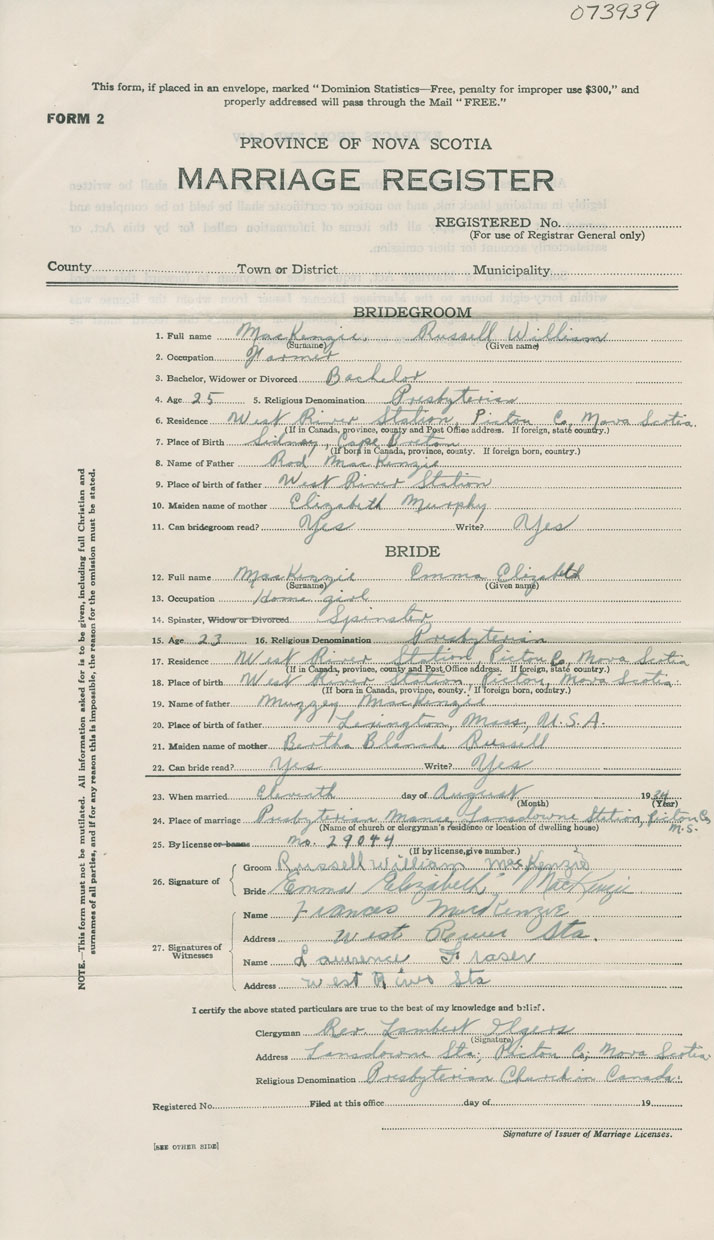 073939
This form, if placed in an envelope, marked "Dominion Statistics—Free, penalty for improper use $300," and
properly addressed will pass through the Mail "FREE."
FORM 2
PROVINCE OF NOVA SCOTIA
MARRIAGE REGISTER
REGISTERED No.
(For use of Registrar General only)
County Town or District Municipality
BRIDEGROOM
1. Full name MacKenzie, Russell William
(Surname) (Given name)
2. Occupation Farmer
3. Bachelor, Widower or Divorced Bachelor
4. Age 25 5. Religious Denomination Presbyterian
6. Residence West River Station, Pictou Co, Nova Scotia.
(If in Canada, province, county and Post Office address. If foreign, state country.)
7. Place of Birth Sidney, Cape Breton
(If born in Canada, province, county. If foreign born, country.)
8. Name of Father Rod MacKenzie
9. Place of birth of father West River Station
10. Maiden name of mother Elizabeth Murphy
11. Can bridegroom read? Yes Write? Yes
BRIDE
12. Full name MacKenzie Emma Elizabeth
(Surname) (Given name)
13. Occupation Home girl
14. Spinster, Widow or Divorced Spinster
15. Age 23 16. Religious Denomination Presbyterian
17. Residence West River Station, Pictou Co, Nova Scotia
(If in Canada, province, county and Post Office address. If foreign, state country.)
18. Place of birth West River Station, Pictou, Nova Scotia.
(If born in Canada, province, county. If foreign born, country.)
19. Name of father Muzzey MacKenzie
20. Place of birth of father Lexington, Mass, U.S.A.
21. Maiden name of mother Bertha Blanch Russell
22. Can bride read? Yes Write? Yes
23. When married Eleventh day of August 1934
(Month) (Year)
24. Place of marriage Presbyterian Manse, Lansdowne Station, Pictou Co,
N.S.
(Name of church or clergyman's residence or location of dwelling house)
25. By license or banns No. 29044
(If by license, give number.)
26. Signature of
Groom Russell William MacKenzie
Bride Emma Elizabeth MacKenzie
27. Signatures of Witnesses
Name Frances MacKenzie
Address West River Sta.
Name Lawrence Fraser
Address West River Sta
I certify the above stated particulars are true to the best of my knowledge and belief.
Clergyman Rev. Lambert
(Signature)
Address Lansdowne Sta; Pictou Co; Nova Scotia.
Religious Denomination Presbyterian Church in Canada.
Registered No. Filed at this office day of 19
Signature of Issuer of Marriage Licenses.
[SEE OTHER SIDE]
NOTE.—This form must not be mutilated. All information asked for is to be given, including full Christian and
surnames of all parties, and if for any reason this is impossible, the reason for the omission must be stated.